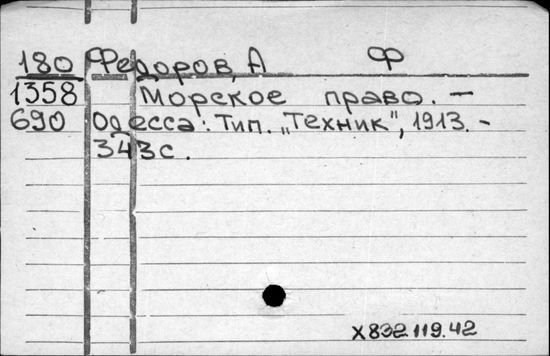 180 Федоров, А Ф
1358 Морское право. —
690 Одесса: Тип. „Техник", 1913. -
343 с.
X832.119.42